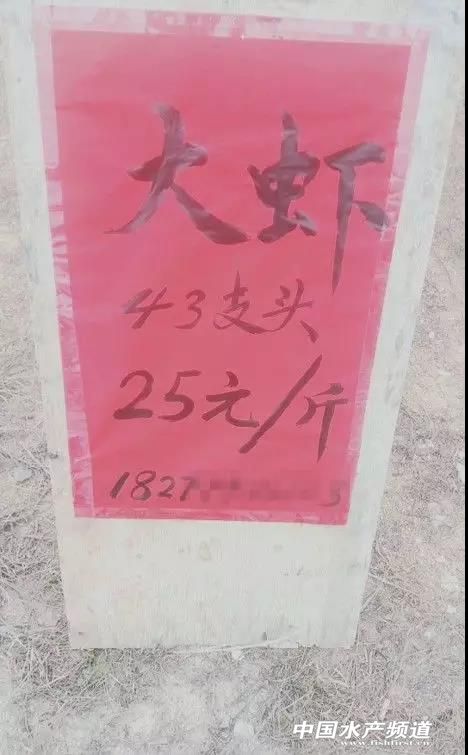 大虾
43支头
25元/斤
1827
3
中国水产频道
www.fishfirst.cn